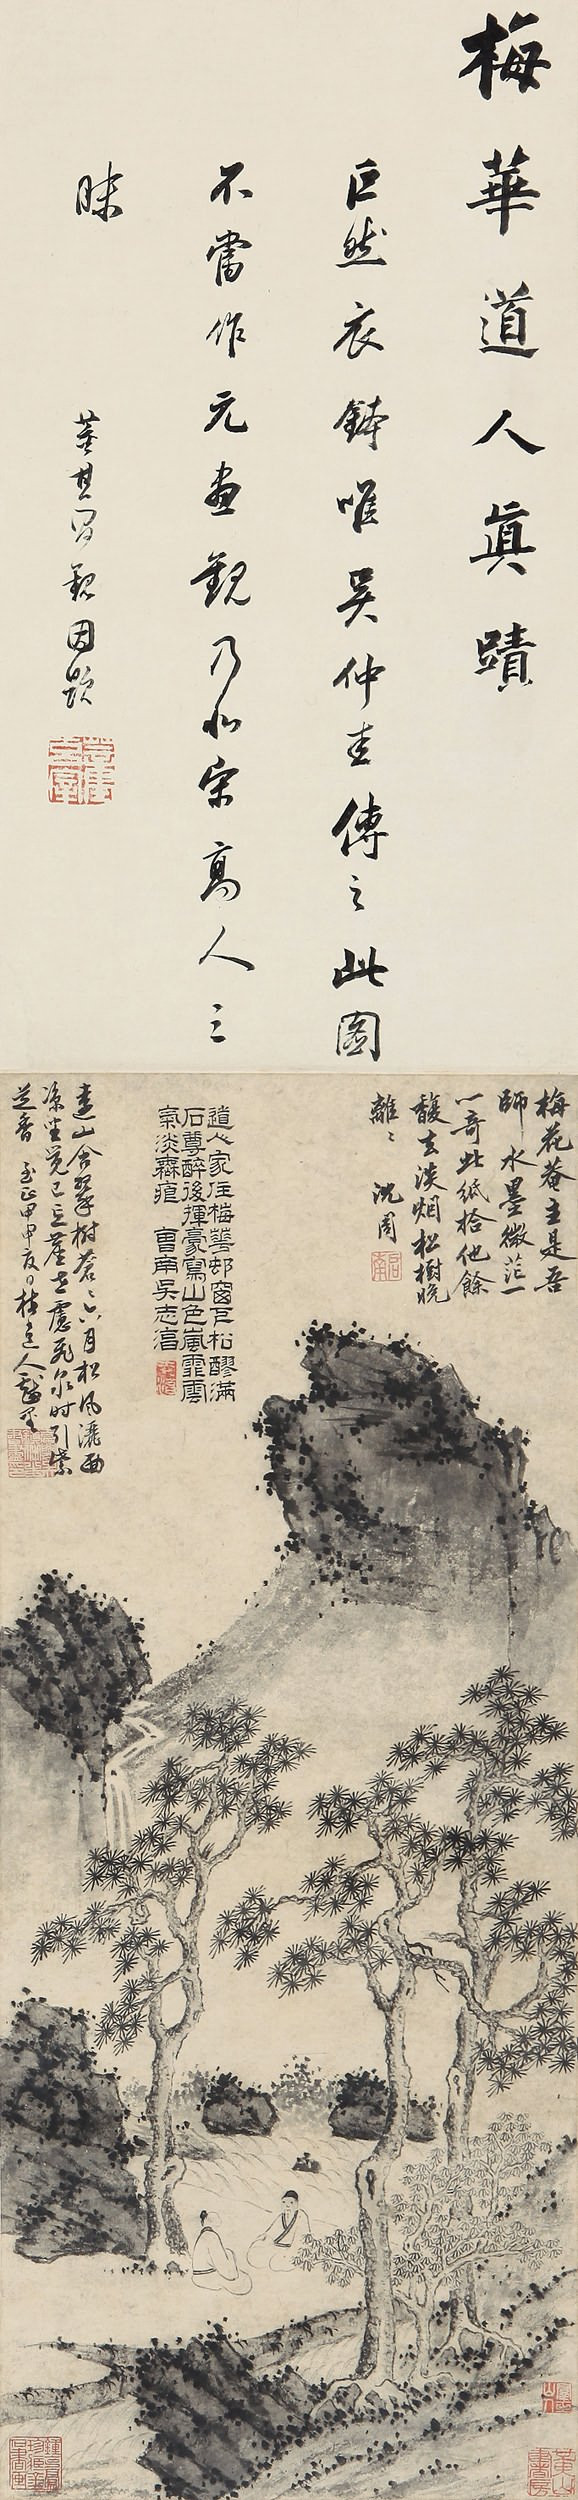 梅華道人真蹟
巨然衣鉢唯吳仲圭傳之此圖
不當作元畫觀乃北宋高人三
昧
董其昌觀因題
梅花菴主是吾
師水墨微茫一
一奇此紙拾他餘
馥去淡烟松樹晚
離離 沈周
道人家住梅華邨窗下松醪滿
石尊醉後揮豪寫山色嵐霏雲
氣淡無痕 曹南吳志淳
遠山含翠樹蒼蒼六月松風灑面
涼坐覺已忘塵世慮飛泉時引紫
芝香 至正甲申夏日梅道人戲墨